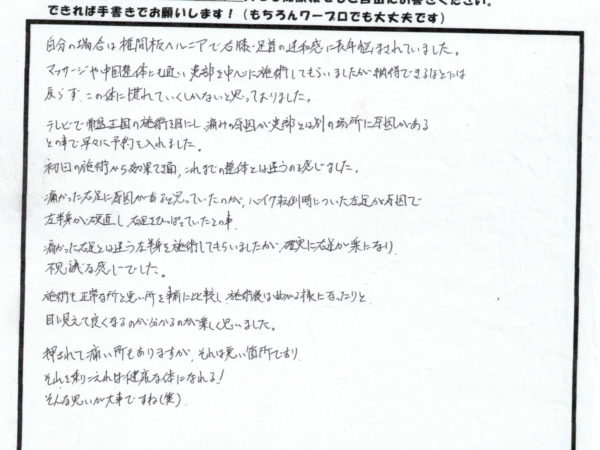 できれば手書きでお願いします！（もちろんワープロでも大丈夫です）
自分の場合は椎間板ヘルニアで右膝・足首の違和感に長年悩まされていました。
マッサージや中国整体にも通い 患部を中心に施術してもらいましたが納得できるほどには
戻らず、この体に慣れていくしかないと思っておりました。
テレビで 骨盤王国の施術を目にし 痛みの原因が患部とは別の場所に原因がある
との事で早々に予約を入れました。
初回の施術から効果で これまでの整体とは違うのを感じました。
痛かった右足に原因があると思っていたのが、バイク転倒時についた左足が原因で
左半身が硬直し 右足をひっぱっていたとの事
痛かった右足とは違う左半身を施術してもらいましたが 確実に右足が楽になり
不思議な感じでした。
施術も正常な所と悪い所を事前に比較し 施術後は曲がる様になったりと
目に見えて良くなるのが分かるのが楽しく思いました。
押されて痛い所もありますが、それは悪い箇所であり
それを乗りこえれば健康な体になれる！
そんな思いが大事ですね（笑）